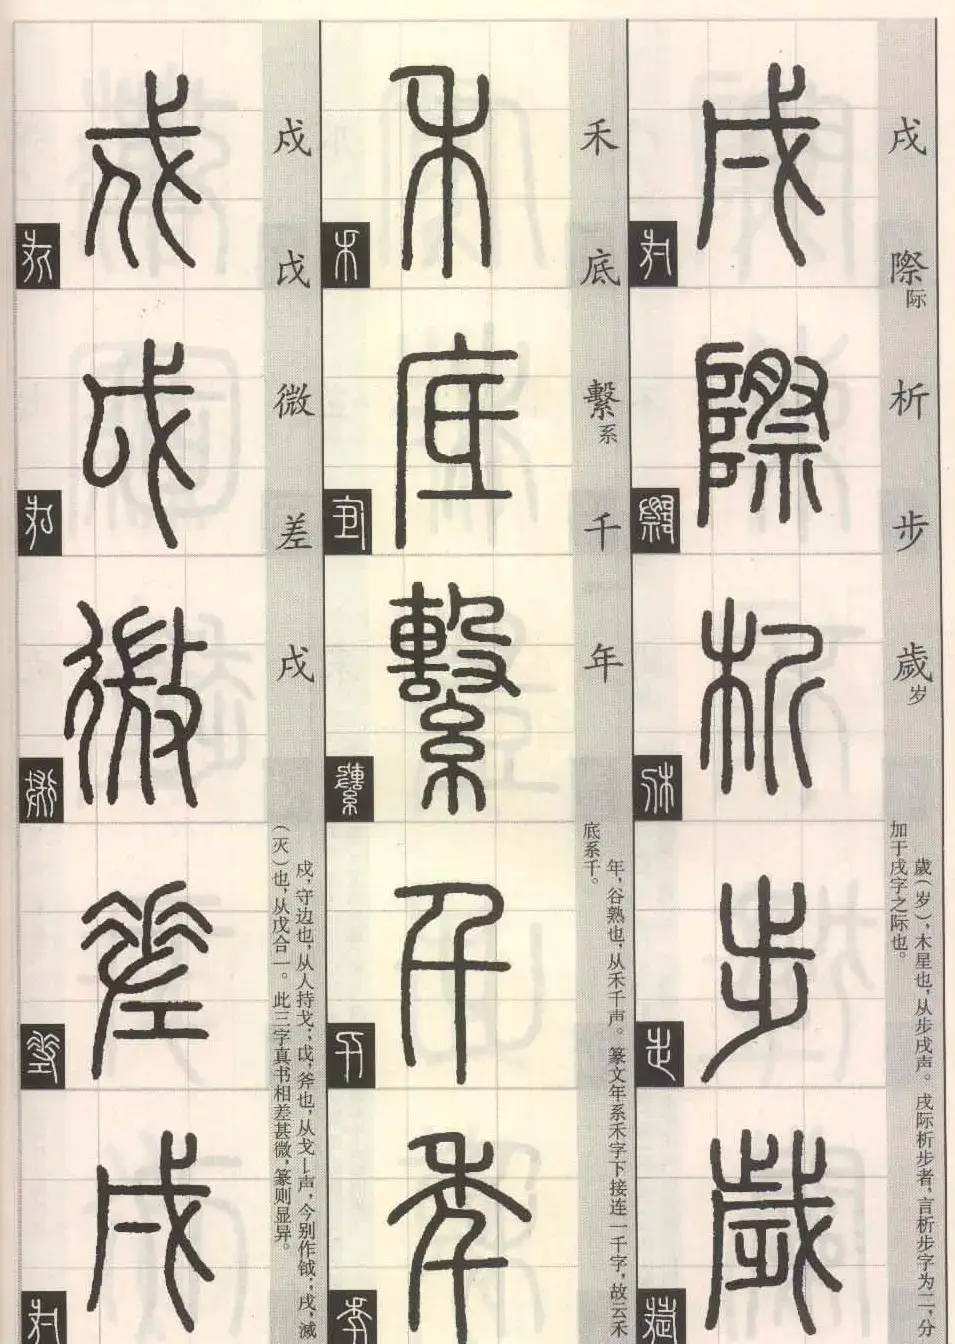 戌際际析步歲岁
歲(岁),木星也,从步戌声。戌际析步者,言析步字为二,分
加于戌字之际也。
戌際析步歲
禾底繫系千年
年,谷熟也,从禾千声。篆文年系禾字下接连一千字,故云禾
底系千。
禾底繫千年
戍戉微差戌
戍,守边也,从人持戈;戉,斧也,从戈𠄌声,今别作钺;戌,滅
(灭)也,从戊合一。此三字真书相差甚微,篆则显异。
戍戉微差戌